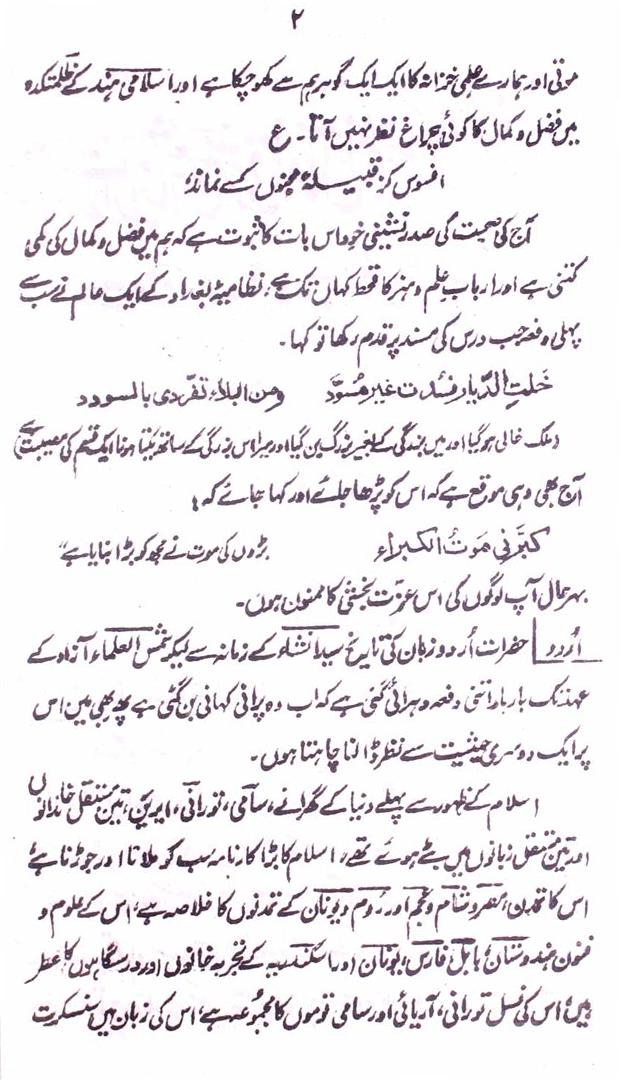 ۲
موتی اور ہمارے علمی خزانہ کا ایک ایک گوہر ہم سے کھو چکا ہے اور اسلامی ہند کے ظلمتکدہ
میں فضل و کمال کا کوئی چراغ نظر نہیں آتا۔ ع
افسوس کز قبیلۂ مجنوں کسے نماند
آج کی صحبت کی صدر نشینی خود اس بات کا ثبوت ہے کہ ہم میں فضل و کمال کی کمی
کتنی ہے اور ارباب علم و ہنر کا قحط کہاں تک ہے، نظامیۂ بغداد کے ایک عالم نے سب سے
پہلی دفعہ جب درس کی مسند پر قدم رکھا تو کہا۔
خلتِ الدّیار فسُدت غیر مُسوَّد ومن البلاء تفرّدی بالسودد
(ملک خالی ہوگیا اور میں بزرگی کے بغیر بزرگ بن گیا اور میرا اس بزرگی کے ساتھ یکتا ہونا ایک قسم کی مصیبت ہے)
آج بھی وہی موقع ہے کہ اس کو پڑھا جائے اور کہا جائے کہ :
کبّرنی مَوتُ الکبراء بڑوں کی موت نے مجھ کو بڑا بنایا ہے"
بہرحال آپ لوگوں کی اس عزت بخشی کا ممنون ہوں۔
اُردو حضرات اُردو زبان کی تاریخ سید انشاء کے زمانہ سے لیکر شمس العلماء آزاد کے
عہد تک بار بار اتنی دفعہ دہرائی گئی ہے کہ اب وہ پرانی کہانی بن گئی ہے پھر بھی میں اس
پر ایک دوسری حیثیت سے نظر ڈالنا چاہتا ہوں۔
اسلام کے ظہور سے پہلے دنیا کے گھرانے، سامی، تورانی، ایرین، تین مستقل خاندانوں
اور تین مستقل زبانوں میں بٹے ہوئے تھے، اسلام کا بڑا کارنامہ سب کو ملانا اور جوڑنا ہے
اس کا تمدن، مصر و شام و عجم اور روم و یونان کے تمدنوں کا خلاصہ ہے، اس کے علوم و
فنون ہندوستان، بابل، فارس، یونان اور اسکندریہ کے تجربہ خانوں اور درسگاہوں کا عطر
ہیں، اس کی نسل تورانی، آریائی اور سامی قوموں کا مجموعہ ہے، اس کی زبان میں سنسکرت